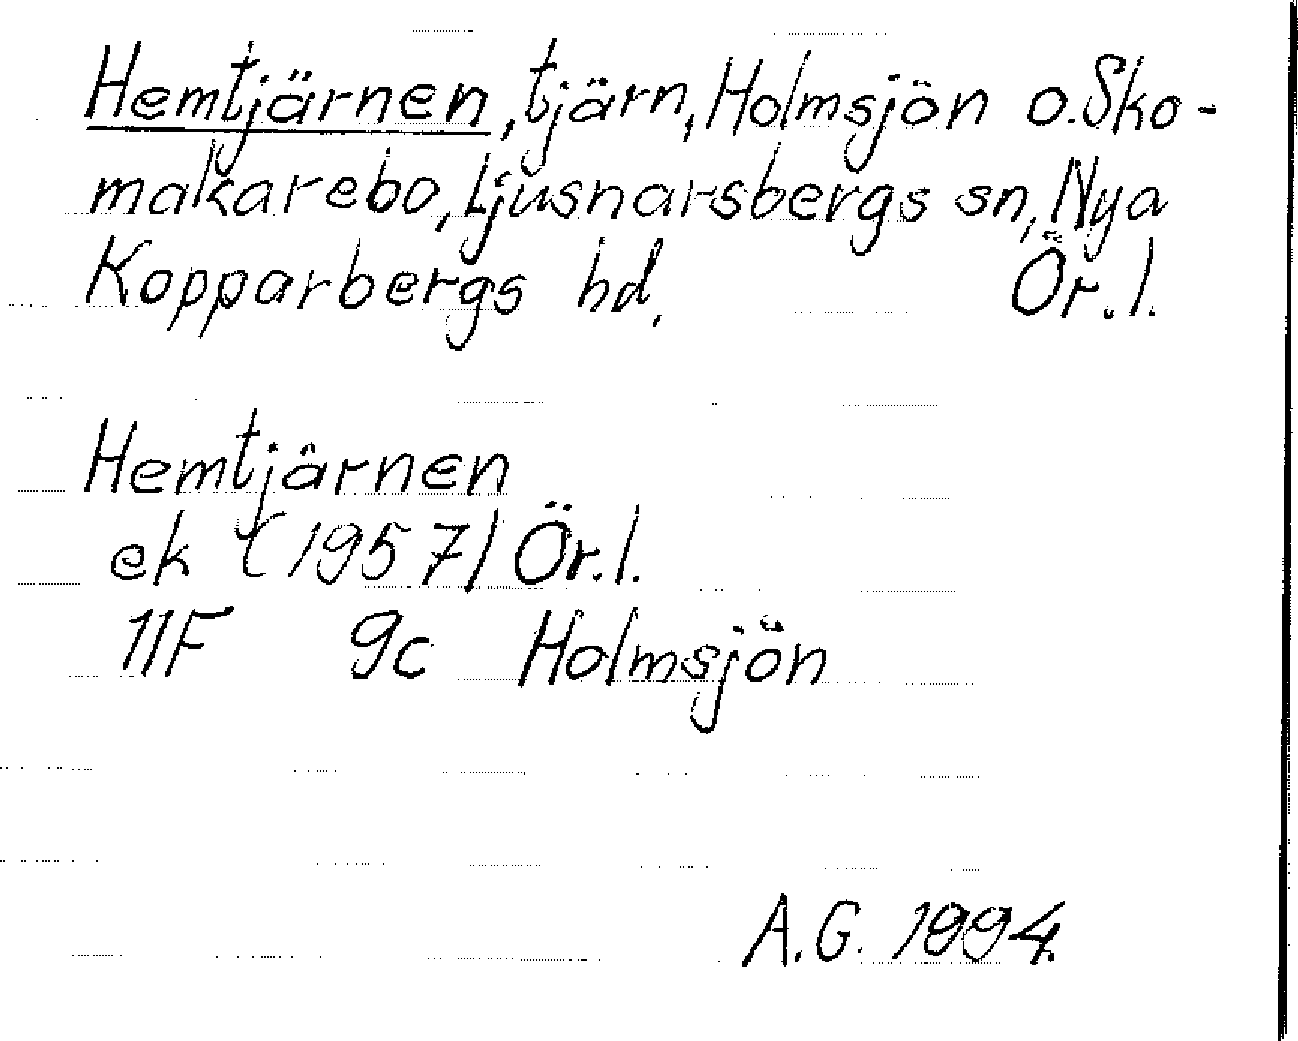 Hemtjärnen, tjärn, Holmsjön o. Sko-
makarebo, Ljusnarsbergs sn, Nya
Kopparbergs hd, Ör. l.
Hemtjärnen
ek (1957) Ör. l.
11F 9c Holmsjön
A.G. 1994.